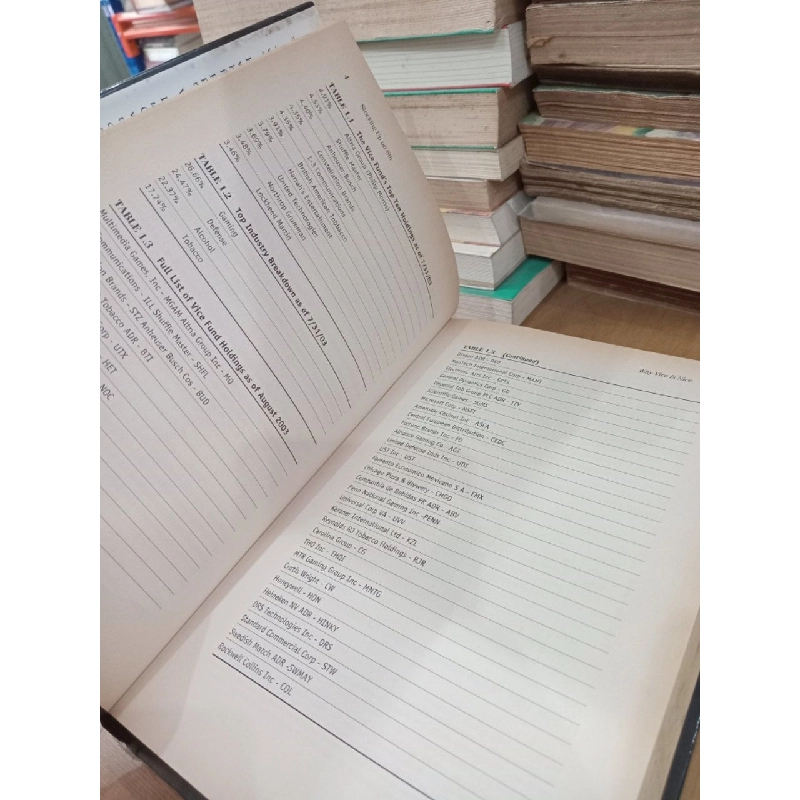 4
TABLE 1.1 The Vice Fund's Top Ten Holdings as of 7/31/03
4.93% Altria Group (Philip Morris)
4.55% Shuffle Master
4.40% Anheuser Busch
Constellation Brands
L-3 Communications
British American Tobacco
Harrah's Entertainment
United Technologies
3.48% Northrop Grumman
3.46% Lockheed Martin
TABLE 1.2 Top Industry Breakdown as of 7/31/03
26.66% Gaming
24.47% Defense
22.37% Alcohol
17.74% Tobacco
TABLE 1.3 Full List of Vice Fund Holdings as of August 2003
Multimedia Games, Inc - MGAM Altria Group Inc - MO
Communications - LLL Shuffle Master - SHFL
Brands - STZ Anheuser Busch Cos - BUD
Tobacco ADR - BTI
Corp - UTX
- HET
NOC
Why Vice Is Nice
TABLE 1.3 (Continued)
Diageo ADR - DEO
General Dynamics Corp - GD
Scientific Games - SGMS
Microsoft Corp - MSFT
Central European Distribution - CEDC
Fortune Brands Inc - FO
Alliance Gaming Co - AGI
United Defense Inds Inc - UDI
UST Inc - UST
Fomento Economico Mexicano S A - FMX
Chicago Pizza & Brewery - CHGO
Companhia de Bebidas PR ADR - ABV
Penn National Gaming Inc - PENN
Universal Corp VA - UVV
Kerzner International Ltd - KZL
Reynolds RJ Tobacco Holdings - RJR
Carolina Group - CG
THQ Inc - THQI
MTR Gaming Group Inc - MNTG
Curtis Wright - CW
Honeywell - HON
Heineken NV ADR - HINKY
DRS Technologies Inc - DRS
Standard Commercial Corp - STW
Swedish Match ADR -SWMAY
Rockwell Collins Inc - COL